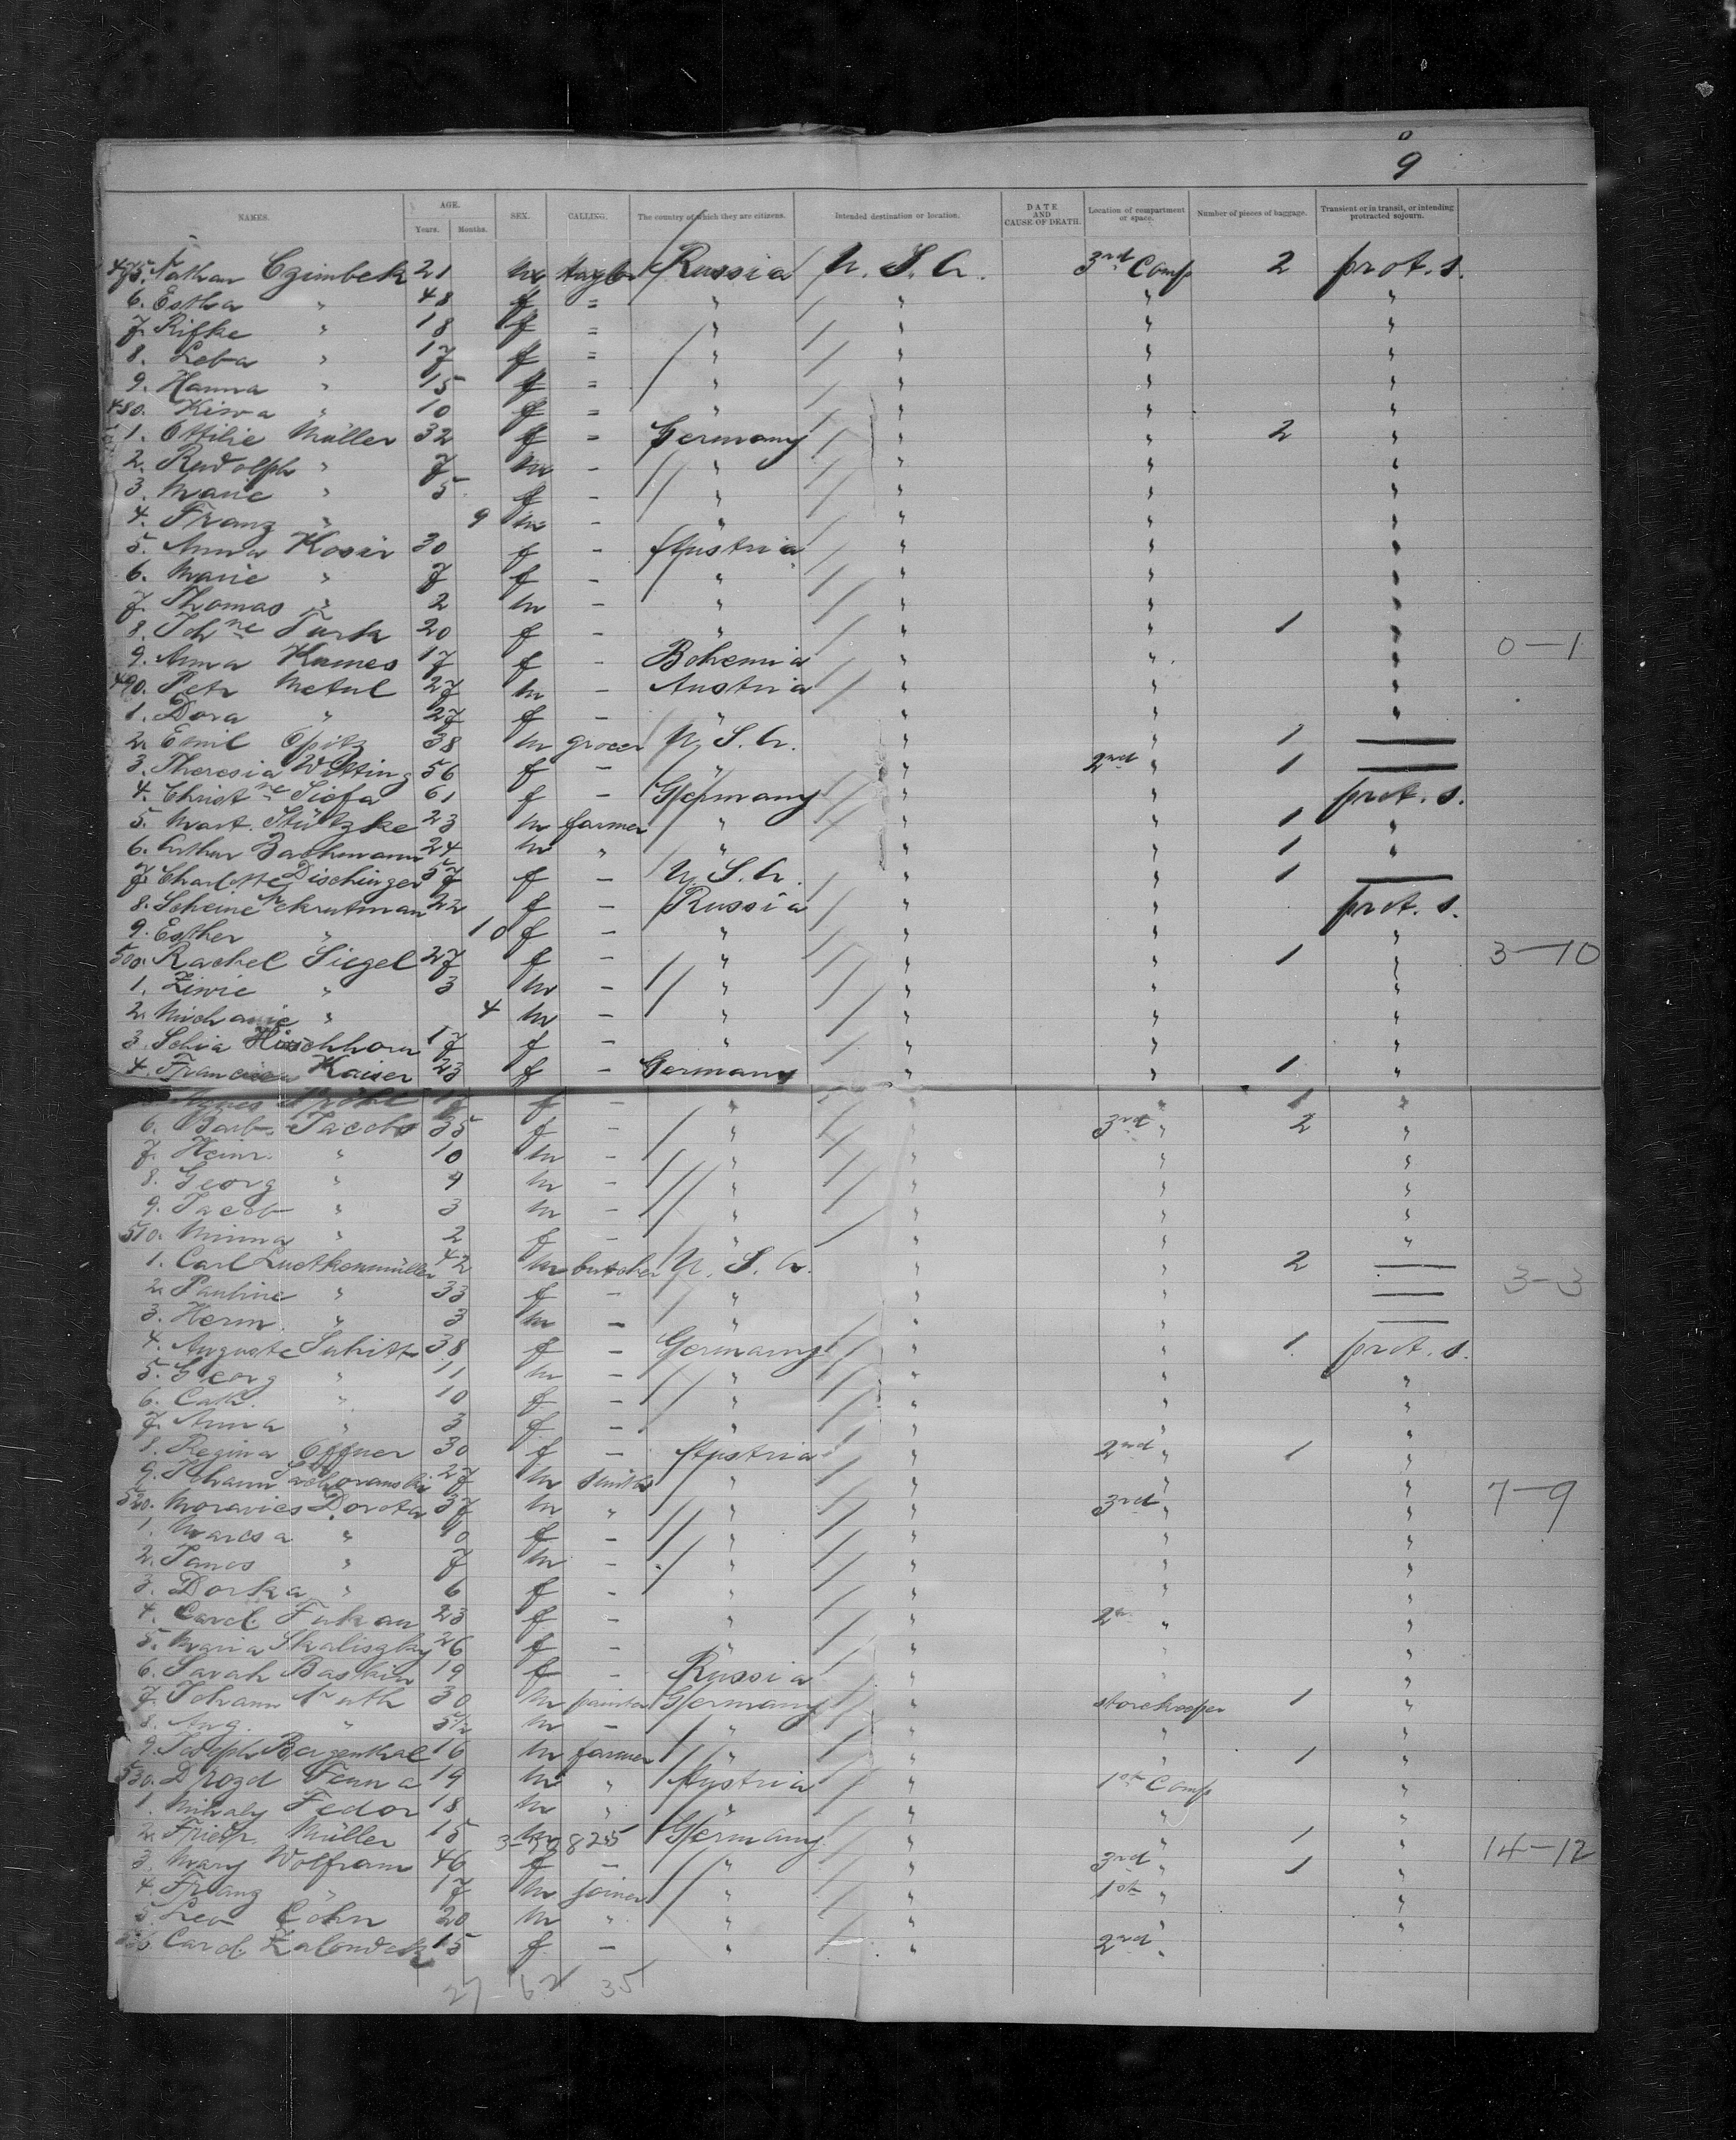 0
9
NAMES. AGE. Years. Months. SEX. CALLING. The country of which they are citizens. Intended destination or location. DATE AND CAUSE OF DEATH. Location of compartment or space. Number of pieces of baggage. Transient or in transit, or intending protracted sojourn.
475. Nathan Czimbek 21 m taylor Russia U. S. A. 3rd Comp 2 prot. s.
6. Estha " 48 f = " " " "
7. Rifke " 18 f = " " " "
8. Leba " 17 f = " " " "
9. Hanna " 15 f = " " " "
480. Kiwa " 10 f = " " " "
1. Ottilie Müller 32 f = Germany " " 2 "
2. Rudolph " 7 m - " " " "
3. Marie " 5 f - " " " "
4. Franz " 9 m - " " " "
5. Anna Kosir 30 f - Austria " " "
6. Marie " 7 f - " " " "
7. Thomas " 2 m - " " " "
8. Joh ne Turk 20 f - " " " 1 "
9. Anna Kumes 17 f - Bohemia " " " 0-1
490. Petr Metul 27 m - Austria " " "
1. Dora " 27 f - " " " "
2. Emil Opitz 38 m grocer U. S. A. " " 1 —
3. Theresia Witting 56 f - " " 2nd " 1 —
4. Christ ne Siefa 61 f - Germany " " prot. s.
5. Mart. Stützke 23 m farmer " " " 1 "
6. Arthur Bachmann 24 m " " " " 1 "
7. Charlotte Dischinger 57 f - U. S. A. " " 1 —
8. Scheine 22 f - Russia " " prot. s.
9. Esther " 10 f - " " " "
500. Rachel Siegel 27 f - " " " 1 " 3-10
1. Ziwie " 3 m - " " " "
2. " 4 m - " " " "
3. Schia Hirschhorn 17 f - " " " "
4. Kaiser 23 f - Germany " " 1 "
f - " " " 1 "
6. Barb. Jacob 35 f - " " 3rd " 2 "
7. Heinr. " 10 m - " " " "
8. Georg " 9 m - " " " "
9. Jacob " 3 m - " " " "
510. Minna " 2 f - " " " "
1. Carl Luetkenmüller 42 m butcher U. S. A. " " 2 —
2. Pauline " 33 f - " " " — 3-3
3. Herm. " 3 m - " " " —
4. Auguste 38 f - Germany " " 1 prot. s.
5. Georg " 11 m - " " " "
6. Cath. " 10 f - " " " "
7. Anna " 3 f - " " " "
8. Regina Offner 30 f - Austria " 2nd " 1 "
9. Johann 27 m smith " " " "
520. Moravics Dorota 37 m " " " 3rd " " 7-9
1. Marcsa " 10 f - " " " "
2. Janos " 7 m - " " " "
3. Dorka " 6 f - " " " "
4. Carol. Fukan 23 f - " " 2nd " "
5. Maria Skaliszky 26 f - " " " "
6. Sarah Baskin 19 f - Russia " " "
7. Johann 30 m painter Germany " storekeeper 1 "
8. Aug. " 5 1/2 m - " " " "
9. Joseph Bergenthal 16 m farmer " " " 1 "
530. Drozd Fenna 19 m " Austria " 1st Comp "
1. Mihaly Fedor 18 m " " " " "
2. Friedr. Müller 15 m Germany " " 1 " 14-12
3. Mary Wolfram 46 f - " " 3rd " 1 "
4. Franz " 17 m joiner " " 1st " "
5. Leo Cohn 20 m " " " " "
536. Carol. 15 f - " " 2nd "
27 62 35